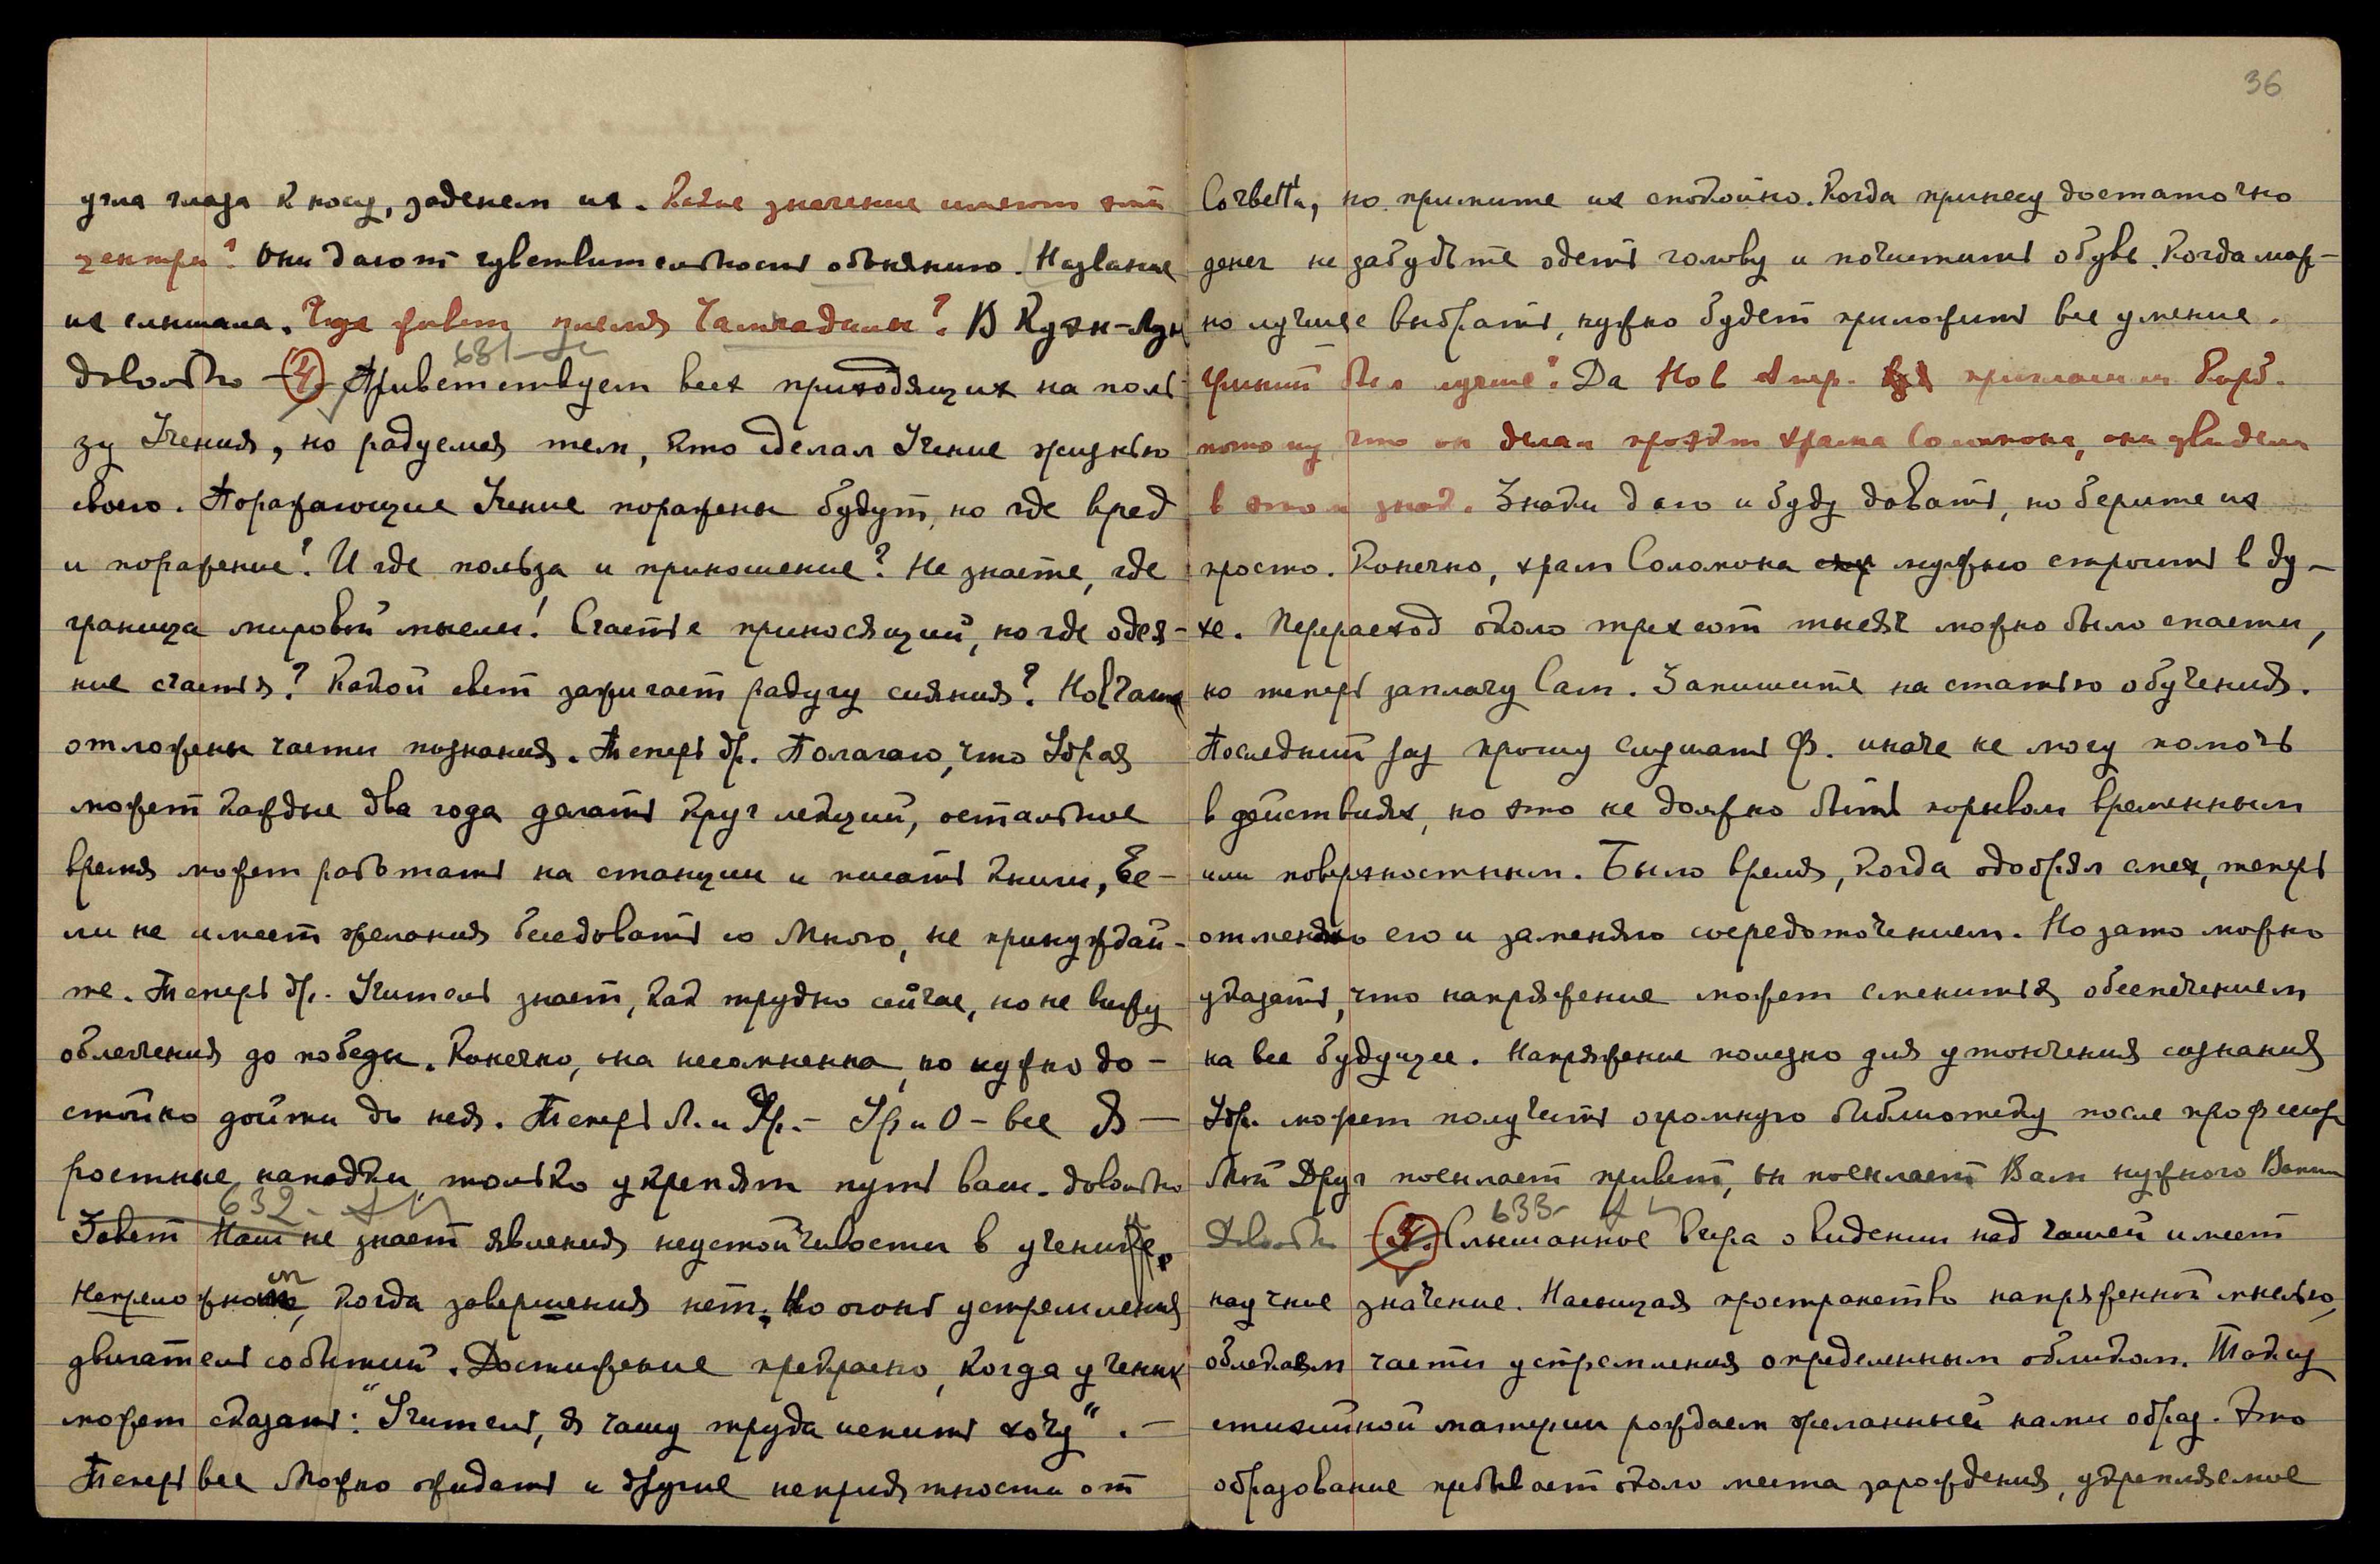 угла глаза к носу, заденем их. Какое значение имеют эти
центры? Они дают чувствительность обонянию. Название
их слышала. Где живет племя ? В Куэн-Лун
Довольно – 4 – Приветствуем всех приходящих на поль-
631-
зу Учения, но радуемся тем, кто сделал Учение жизнью
своею. Поражающие Учение поражены будут, но где вред
и поражение? И где польза и приношение? Не знаете, где
граница мировой мысли! Счастье приносящий, но где одея-
ние счастья? Какой свет зажигает радугу сияния? Но в Чаше
отложены части познания. Теперь др. Полагаю, что Удрая
может каждые два года делать круг лекций, остальное
время может работать на станции и писать книги, Ес-
ли не имеет желания беседовать со Мною, не принуждай-
те. Теперь др. Учитель знает, как трудно сейчас, но не вижу
облегчения до победы. Конечно, она несомненна, но нужно до-
стойно дойти до нея. Теперь Л. и Др. – Ур и О – все Я –
ростные нападки только укрепят путь ваш. Довольно
632-
Завет Наш не знает явления неустойчивости в ученике.
Непреложном, когда завершения нет. Но огонь устремления
двигатель событий. Достижение прекрасно, когда ученик
может сказать: "Учитель, я чашу труда испить хочу". –
Теперь все Можно ожидать и другие неприятности от
36
Corbett'a, но примите их спокойно. Когда принесу достаточно
денег не забудьте одеть голову и почистить обувь. Когда мож-
но лучшее выбрать, нужно будет приложить все умение.
был лучше? Да Нов Амер. пригласили Корб.
потому, что он делал проэкт храма Соломона, они увидели
в этом знак. Знаки даю и буду давать, но берите их
просто. Конечно, храм Соломона нужно строить в ду-
хе. Перерасход около трехсот тысяч можно было спасти,
но теперь заплачу Сам. Запишите на статью обучения.
Последний раз прошу слушать Ф. иначе не могу помочь
в действиях, но это не должно быть порывом временным
или поверхностным. Было время, когда одобрял смех, теперь
отменяю его и заменяю сосредоточением. Но зато можно
указать, что напряжение может смениться обеспечением
на все будущее. Напряжение полезно для утончения сознания
Удр. может получить огромную библиотеку после професор
Мой Друг посылает привет, он посылает Вам нужного
633-
Довольно – 4. Слышанное вчера о видении над чашей имеет
научное значение. Насыщая пространство напряженной мыслью,
облекаем части устремления определенным обликом. Токи
стихийной материи рождаем желанный нами образ. Это
образование пребывает около места зарождения, укрепляемое